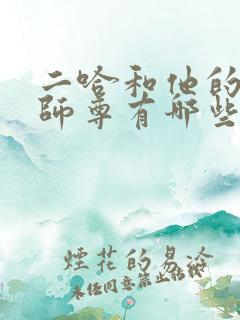 二哈和他的
師尊有哪些
煙花的易冷
未经同意禁止转载